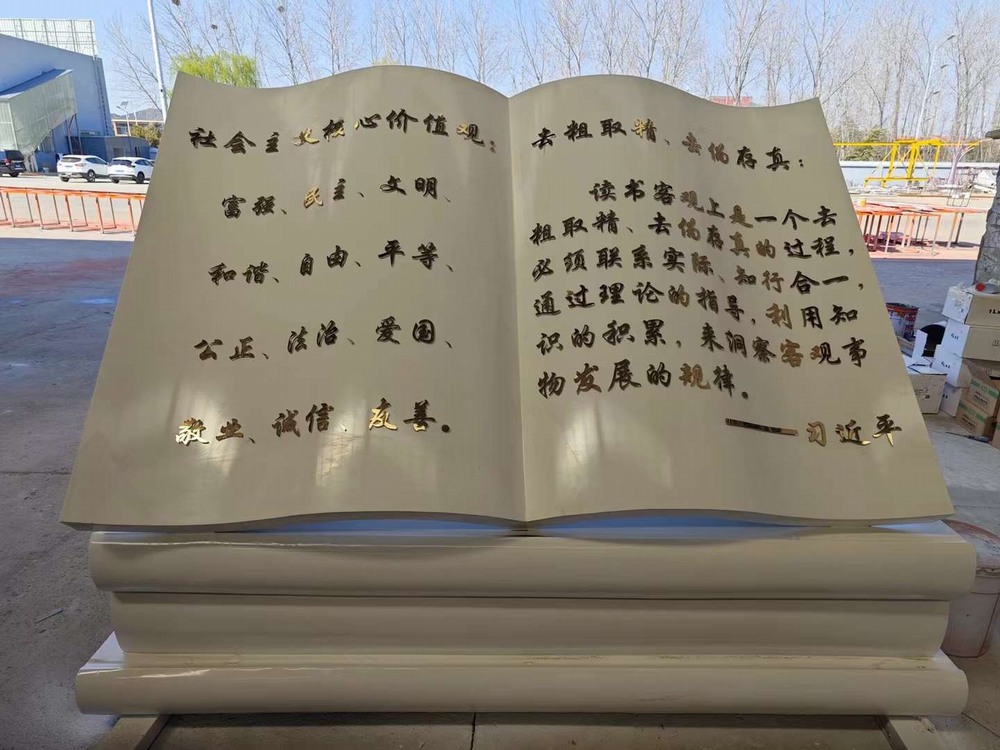 社会主义核心价值观：
富强、民主、文明、
和谐、自由、平等、
公正、法治、爱国、
敬业、诚信、友善。
去粗取精、去伪存真：
读书客观上是一个去
粗取精、去伪存真的过程，
必须联系实际、知行合一，
通过理论的指导，利用知
识的积累，来洞察客观事
物发展的规律。
——习近平